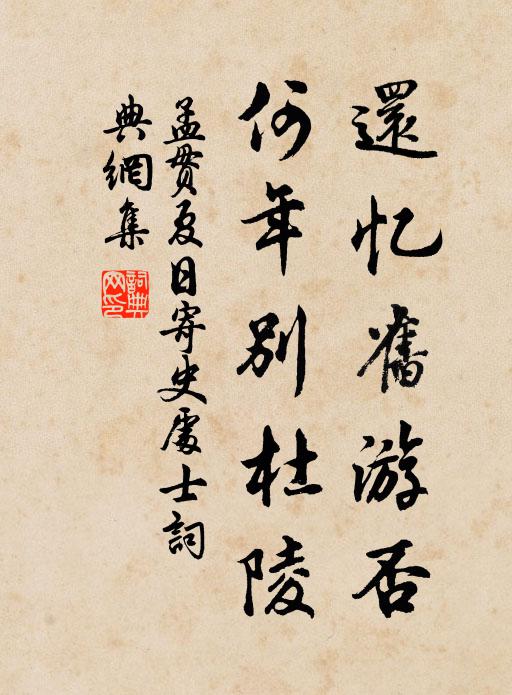 還忆舊游否
何年别杜陵
孟贯夏日寄史處士詞
典網集
詞典
网印